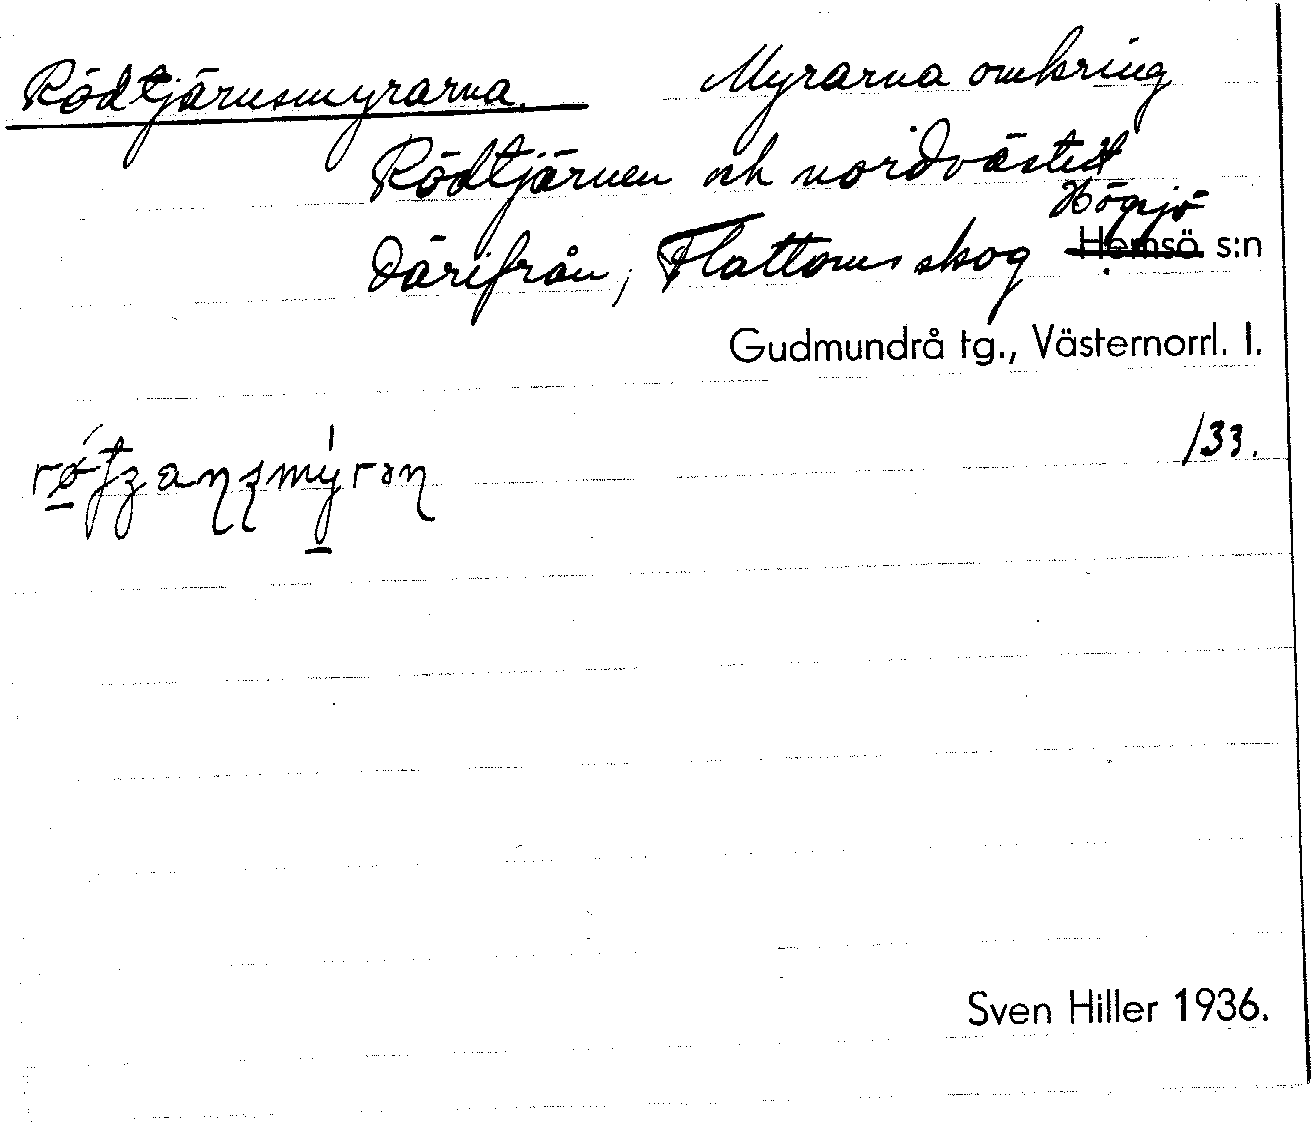 Rödtjärnsmyrarna. Myrarna omkring
Rödtjärnen och nordväster
därifrån, Flattoms skog Högsjö
Hemsö s:n
Gudmundrå tg., Västernorrl. l.
133.
Sven Hiller 1936.